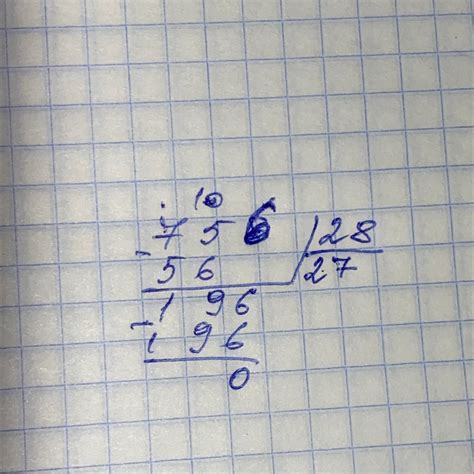 . 10
756 | 28
- 56 27
196
- 196
0